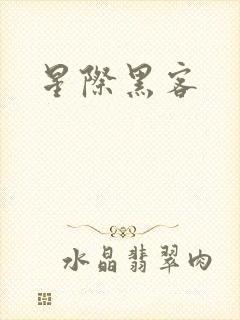 星際黑客
水晶翡翠肉